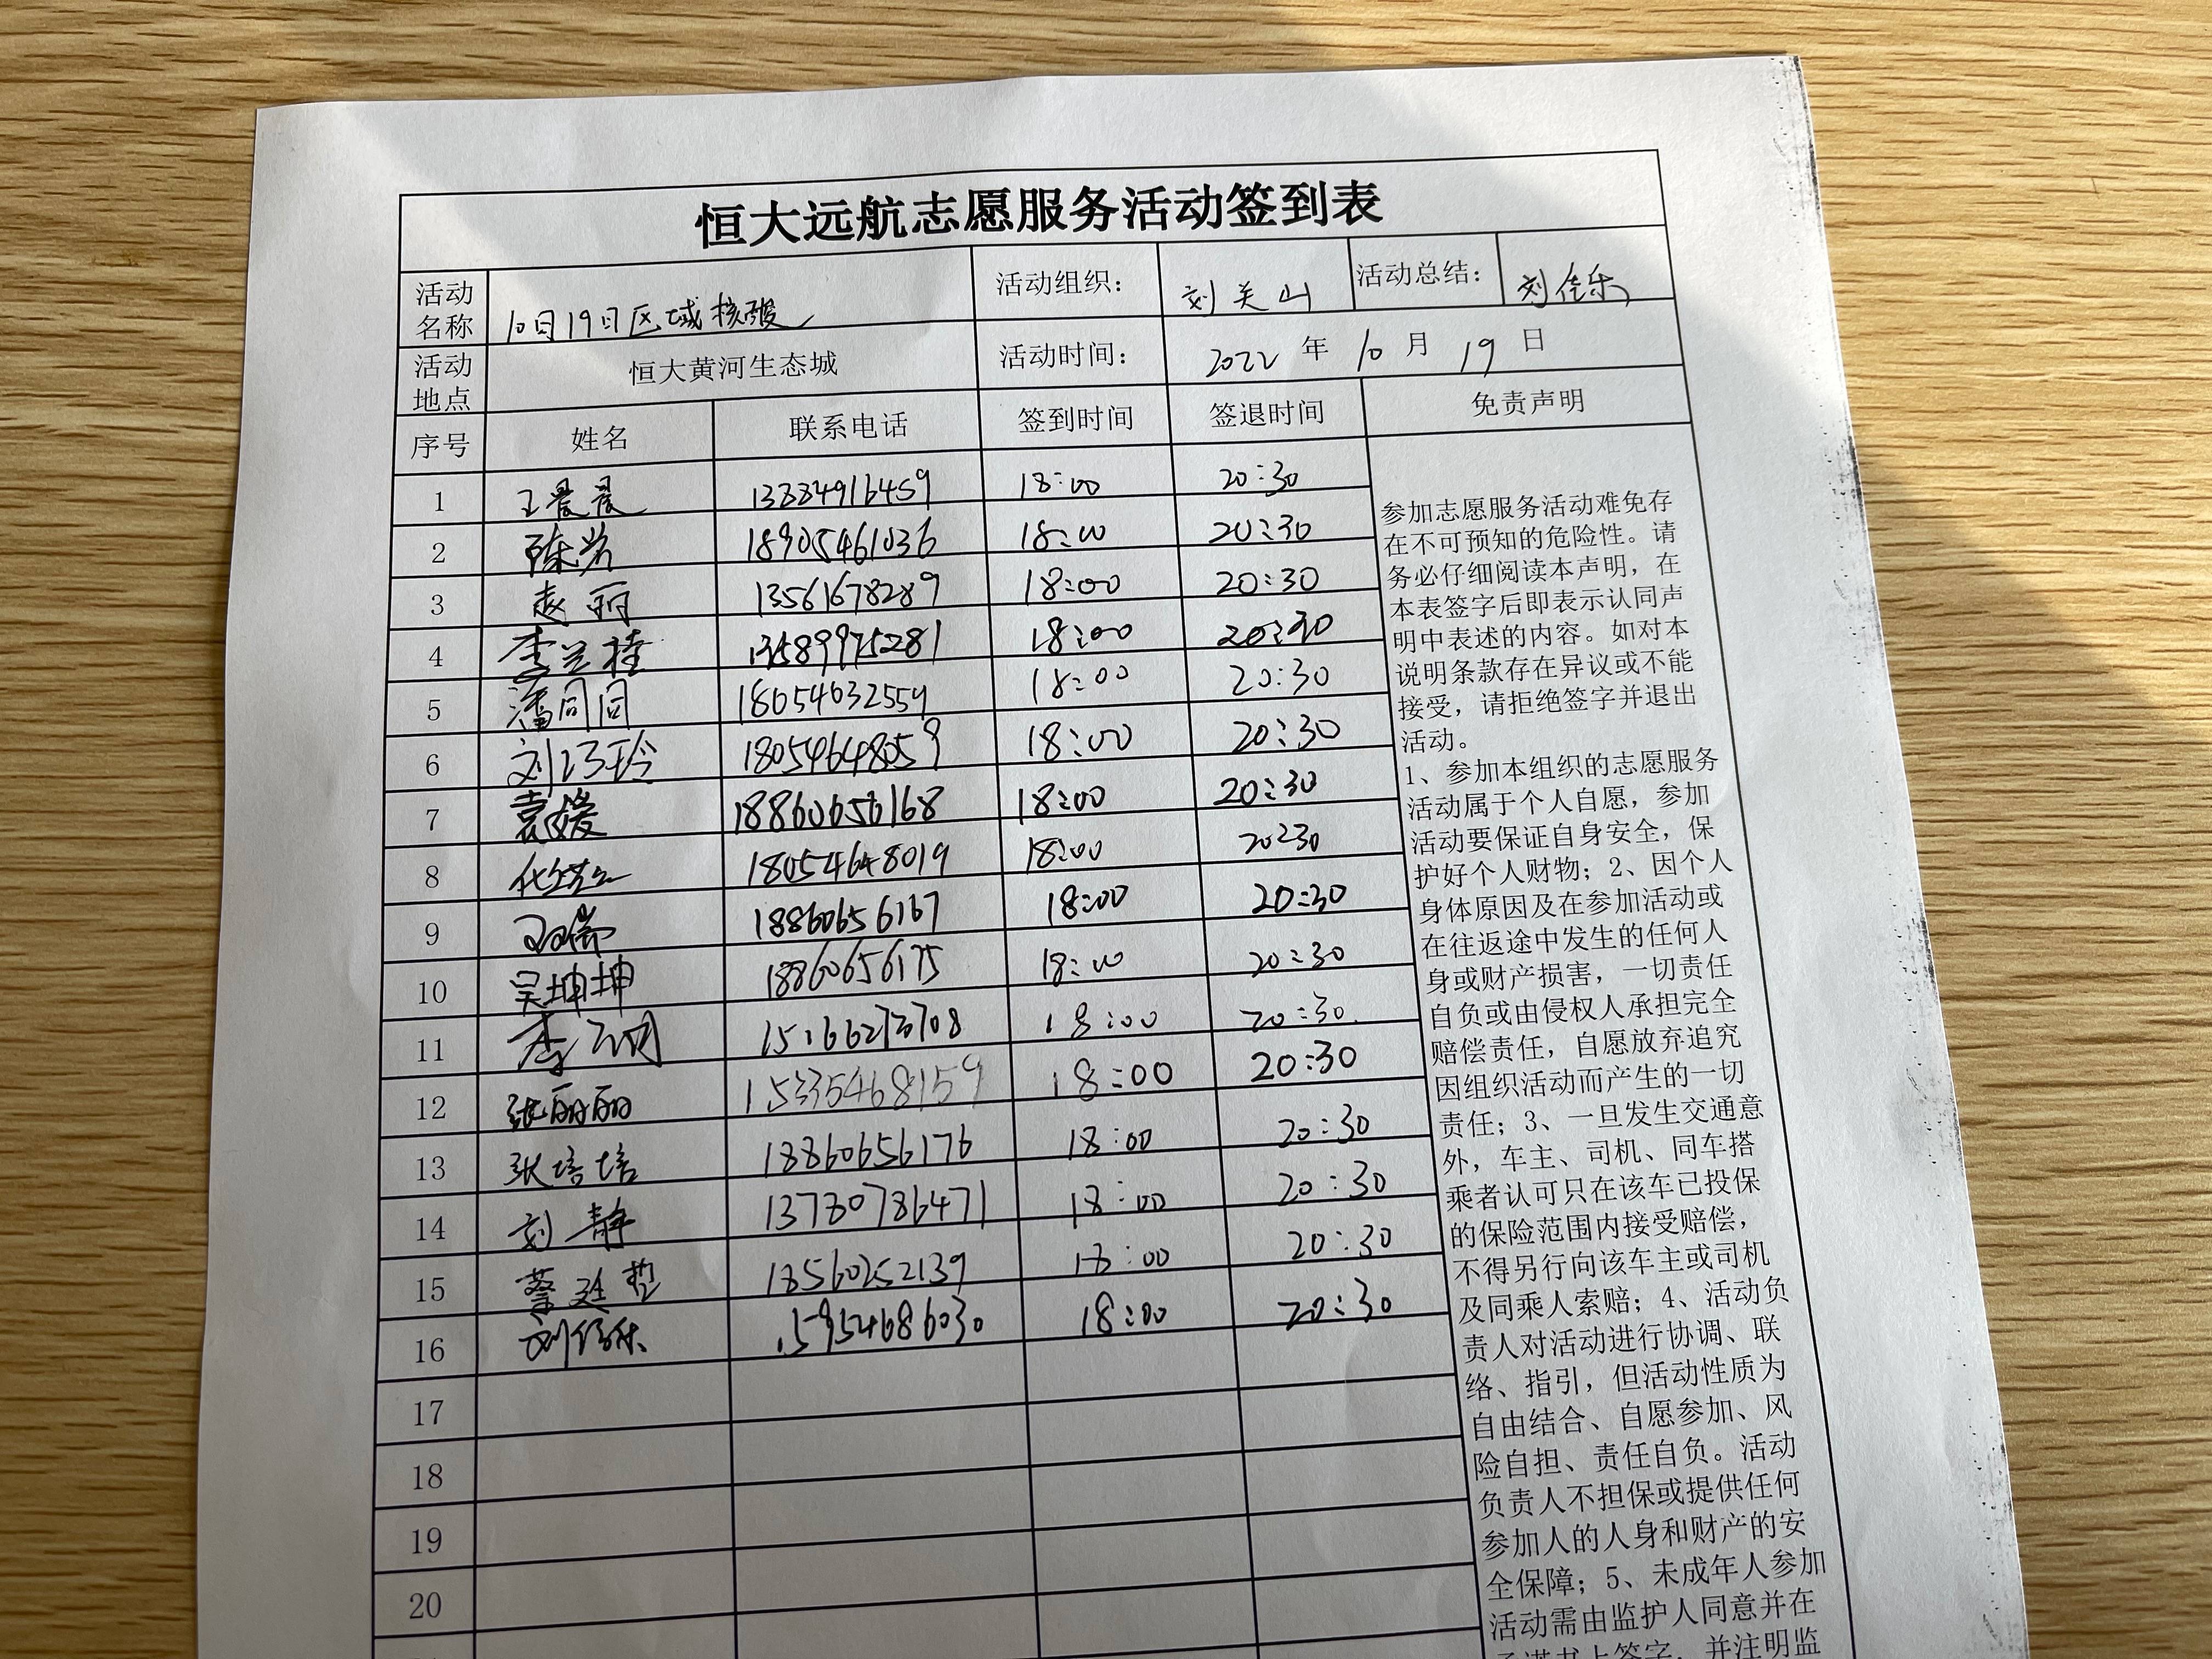 恒大远航志愿服务活动签到表
活动名称 10月19日区域核酸 活动组织： 刘关山 活动总结： 刘佳乐
活动地点 恒大黄河生态城 活动时间： 2022 年 10 月 19 日
序号 姓名 联系电话 签到时间 签退时间 免责声明
1 王晨晨 13884916459 18:00 20:30
2 陈岩 18905461036 18:00 20:30
3 赵丽 13561678289 18:00 20:30
4 李兰桂 13589975281 18:00 20:30
5 潘同同 18054632559 18:00 20:30
6 18054648059 18:00 20:30
7 袁媛 18860656168 18:00 20:30
8 18054648019 18:00 20:30
9 18860656167 18:00 20:30
10 吴坤坤 18860656175 18:00 20:30
11 15166273708 18:00 20:30
12 张丽丽 15335468159 18:00 20:30
13 张培培 18860656176 18:00 20:30
14 刘静 13780786471 18:00 20:30
15 蔡廷哲 18560252139 18:00 20:30
16 刘佳乐 15954686030 18:00 20:30
17
18
19
20
参加志愿服务活动难免存
在不可预知的危险性。请
务必仔细阅读本声明，在
本表签字后即表示认同声
明中表述的内容。如对本
说明条款存在异议或不能
接受，请拒绝签字并退出
活动。
1、参加本组织的志愿服务
活动属于个人自愿，参加
活动要保证自身安全，保
护好个人财物；2、因个人
身体原因及在参加活动或
在往返途中发生的任何人
身或财产损害，一切责任
自负或由侵权人承担完全
赔偿责任，自愿放弃追究
因组织活动而产生的一切
责任；3、一旦发生交通意
外，车主、司机、同车搭
乘者认可只在该车已投保
的保险范围内接受赔偿，
不得另行向该车主或司机
及同乘人索赔；4、活动负
责人对活动进行协调、联
络、指引，但活动性质为
自由结合、自愿参加、风
险自担、责任自负。活动
负责人不担保或提供任何
参加人的人身和财产的安
全保障；5、未成年人参加
活动需由监护人同意并在
承诺书上签字，并注明监